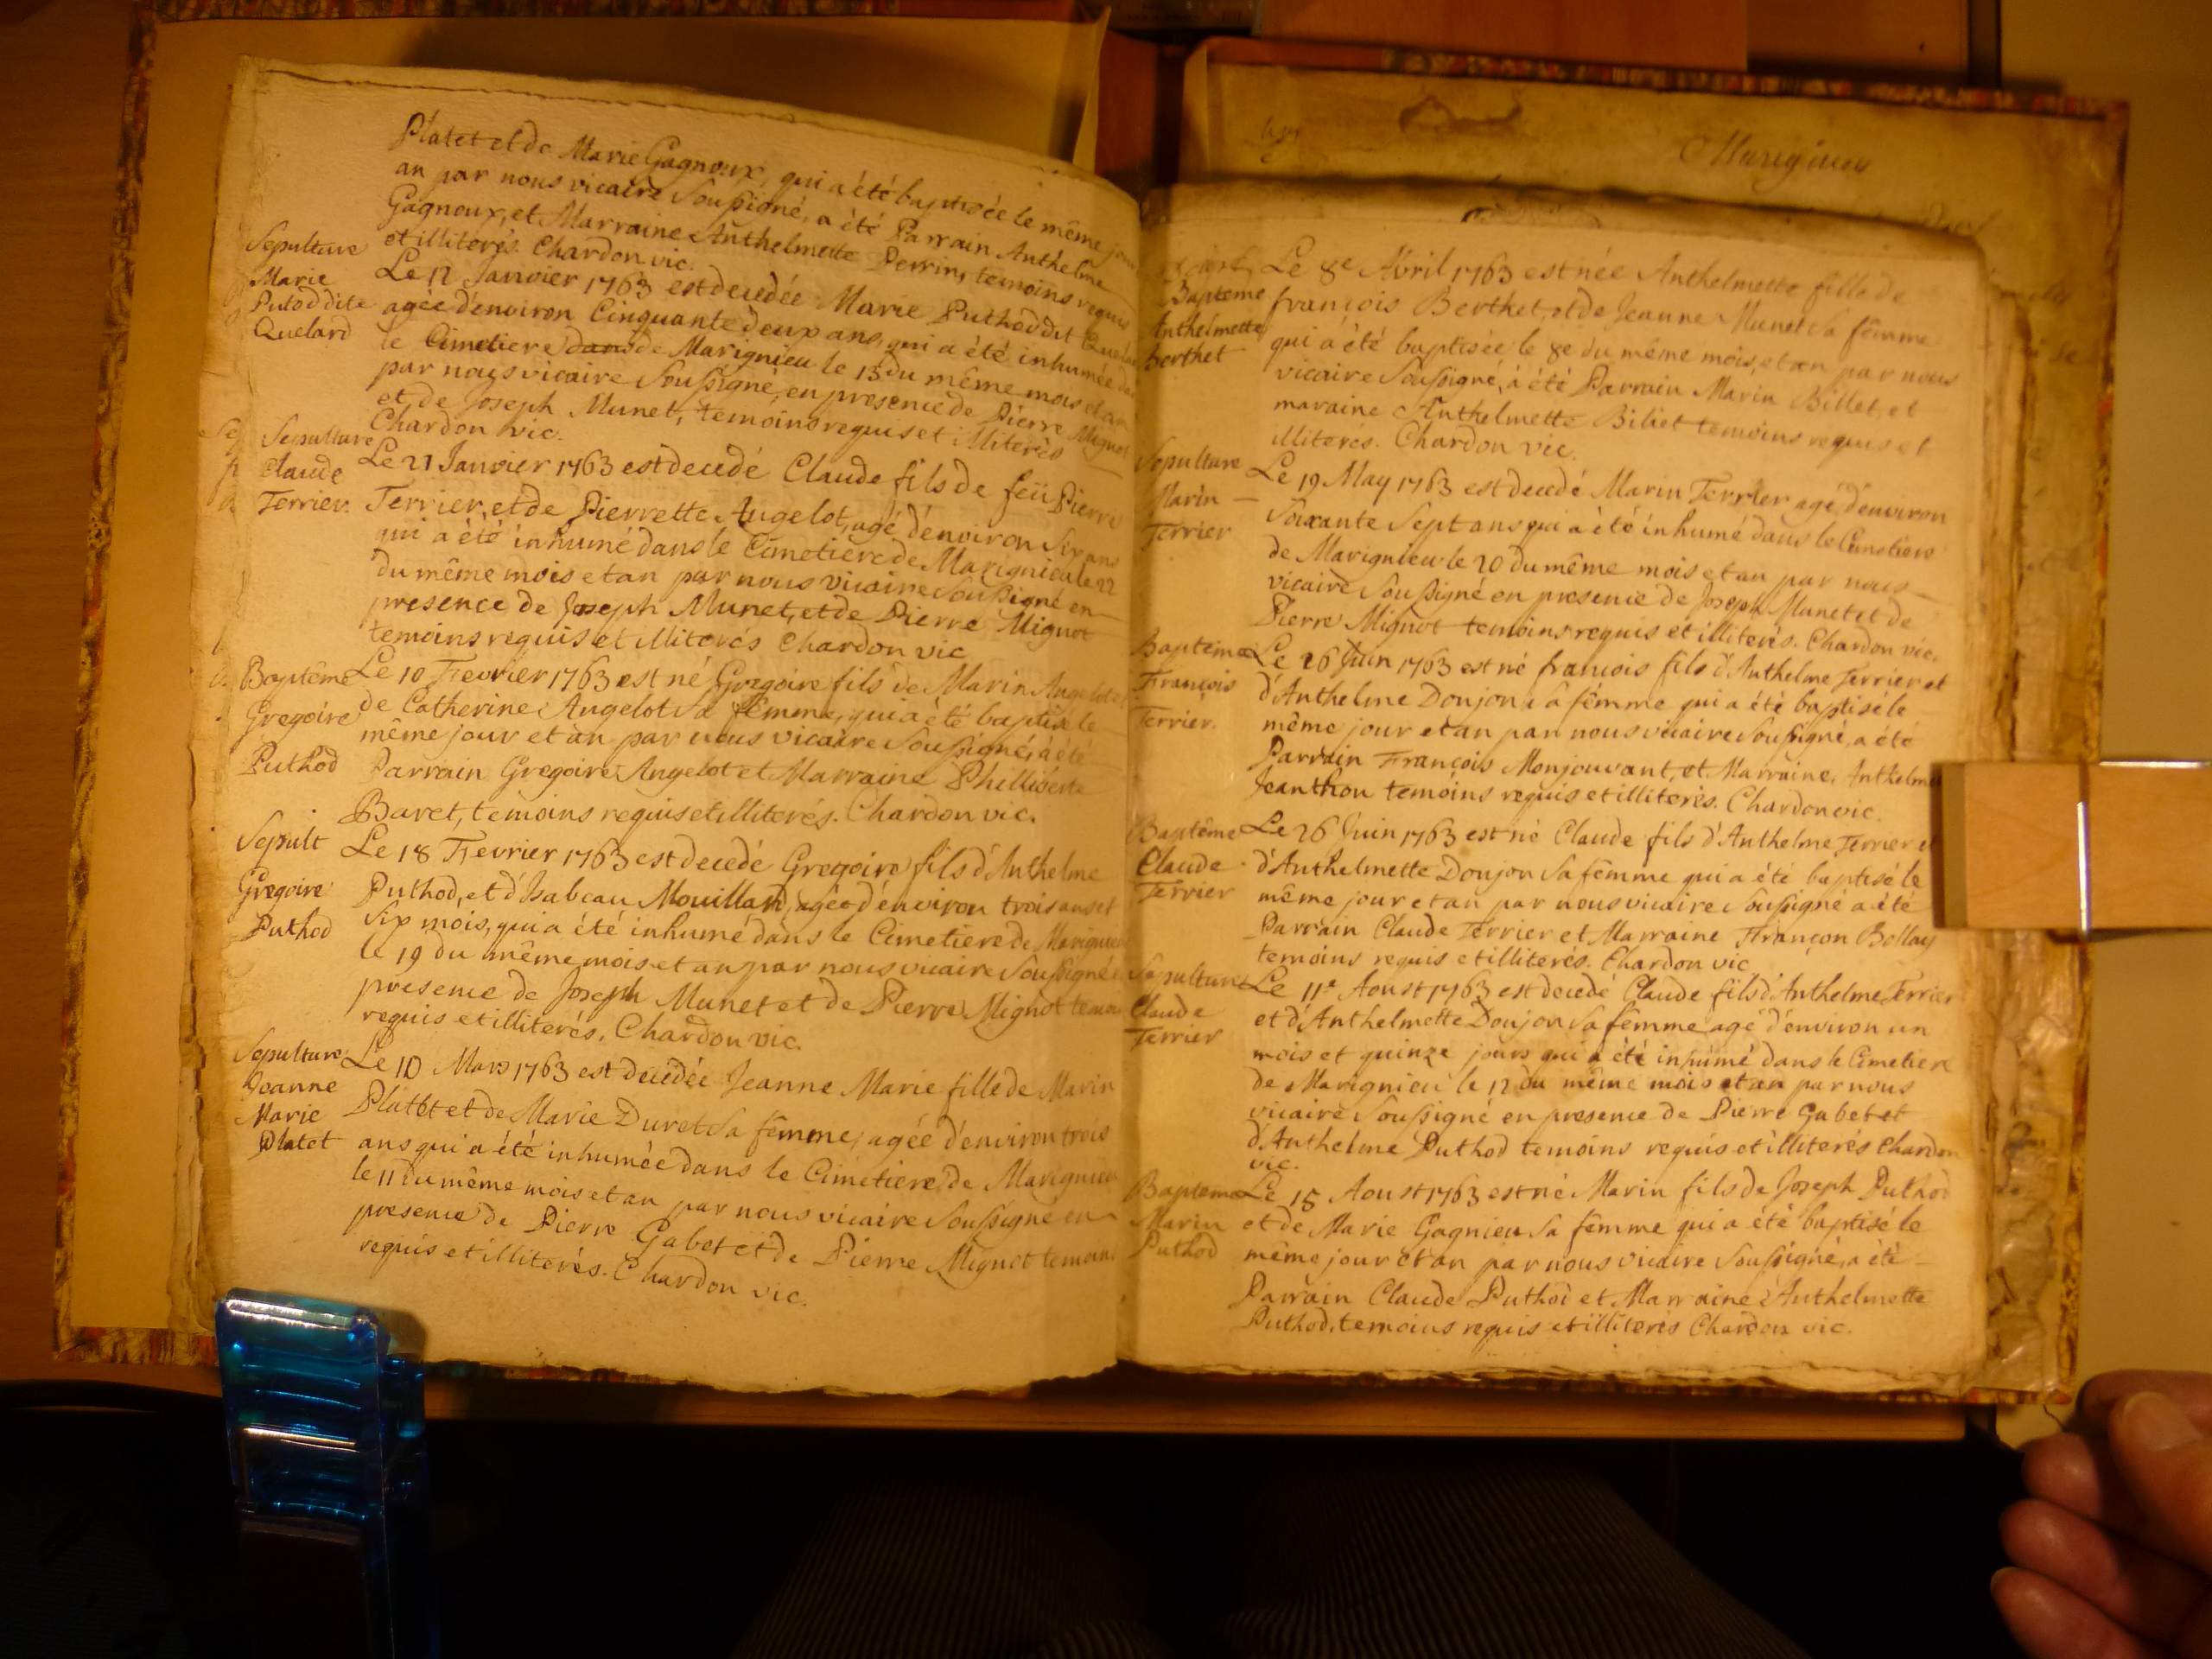 Platet et de Marie Gagnoux, qui a été baptisée le même jour
an par nous vicaire Soussigné, a été Parrain Anthelme
Gagnoux, et Marraine Anthelmette Perrin, temoins requis
et illiterés. Chardon vic.
Sepulture
Marie
Putod dite
Quelard
Le 12 Janvier 1763 est decedée Marie Puthod dit Quelard
agée d'environ Cinquante deux ans, qui a été inhumée dans
le Cimetiere dans de Marignieu le 13 du même mois et an
par nous vicaire Soussigné, en presence de Pierre Mignot
et de Joseph Munet, temoins requis et illiterés
Chardon vic.
Sepulture
Claude
Terrier.
Le 21 Janvier 1763 est decedé Claude fils de feü Pierre
Terrier, et de Pierrette Angelot, agé d'environ Six ans
qui a été inhumé dans le Cimetiere de Marignieu le 22
du même mois et an par nous vicaire Soussigné en
presence de Joseph Munet, et de Pierre Mignot
temoins requis et illiterés Chardon vic
Baptême
Gregoire
Puthod
Le 10 Fevrier 1763 est né Gregoire fils de Marin Angelot et
de Catherine Angelot Sa fêmme, qui a été baptisé le
même jour et an par nous vicaire Soussigné, a été
Parrain Gregoire Angelot et Marraine Phillisberte
Baret, temoins requis et illiterés. Chardon vic.
Sepult
Gregoire
Puthod
Le 18 Fevrier 1763 est decedé Gregoire fils d'Anthelme
Puthod, et d'Isabeau Mouillard, agée d'environ trois ans et
Six mois, qui a été inhumé dans le Cimetiere de Marignieu
le 19 du même mois et an par nous vicaire Soussigné
presence de Joseph Munet et de Pierre Mignot temoins
requis et illiterés, Chardon vic.
Sepulture
Jeanne
Marie
Platet
Le 10 Mars 1763 est decedée Jeanne Marie fille de Marin
Platet et de Marie Duret Sa fêmme, agée d'environ trois
ans qui a été inhumée dans le Cimetiere de Marignieu
le 11 du même mois et an par nous vicaire Soussigné en
presence de Pierre Gabet et de Pierre Mignot temoins
requis et illiterés. Chardon vic.
Marignieu
Bapteme
Anthelmette
berthet
Le 8e Abril 1763 est née Anthelmette fille de
françois Berthet, et de Jeanne Munet Sa fêmme
qui a été baptisée le 8e du même mois, et an par nous
vicaire Soussigné, a été Parrain Marin Billet, et
maraine Anthelmette Biliet temoins requis et
illiterés. Chardon vic.
Sepulture
Marin
Terrier
Le 19 May 1763 est decedé Marin Terrier agé d'environ
Soixante Sept ans qui a été inhumé dans le Cimetiere
de Marignieu le 20 du même mois et an par nous
vicaire Soussigné en presence de Joseph Munet et de
Pierre Mignot temoins requis et illiterés. Chardon vic.
Baptême
François
Terrier.
Le 26 Juin 1763 est né francois fils d'Anthelme Terrier et
d'Anthelme Donjon Sa fêmme qui a été baptisé le
même jour et an par nous vicaire Soussigné, a été
Parrain François Monjouvant, et Marraine, Anthelme
Jeanthon temoins requis et illiterés. Chardon vic.
Baptême
Claude
Terrier
Le 26 Juin 1763 est né Claude fils d'Anthelme Terrier et
d'Anthelmette Donjon Sa fêmme qui a été baptisé le
même jour et an par nous vicaire Soussigné a été
Parrain Claude Terrier et Marraine Françon Bollay
temoins requis et illiterés. Chardon vic
Sepulture
Claude
Terrier
Le 11e Aoust 1763 est decedé Claude fils d'Anthelme Terrier
et d'Anthelmette Donjon Sa fêmme agé d'environ un
mois et quinze jours qui a été inhumé dans le Cimetiere
de Marignieu le 12 du même mois et an par nous
vicaire Soussigné en presence de Pierre Gabet et
d'Anthelme Puthod temoins requis et illiterés Chardon
vic.
Bapteme
Marin
Puthod
Le 15 Aoust 1763 est né Marin fils de Joseph Puthod
et de Marie Gagnieu Sa fêmme qui a été baptisé le
même jour et an par nous vicaire Soussigné, a été
Parrain Claude Puthod et Marraine Anthelmette
Puthod, temoins requis et illiterés Chardon vic.